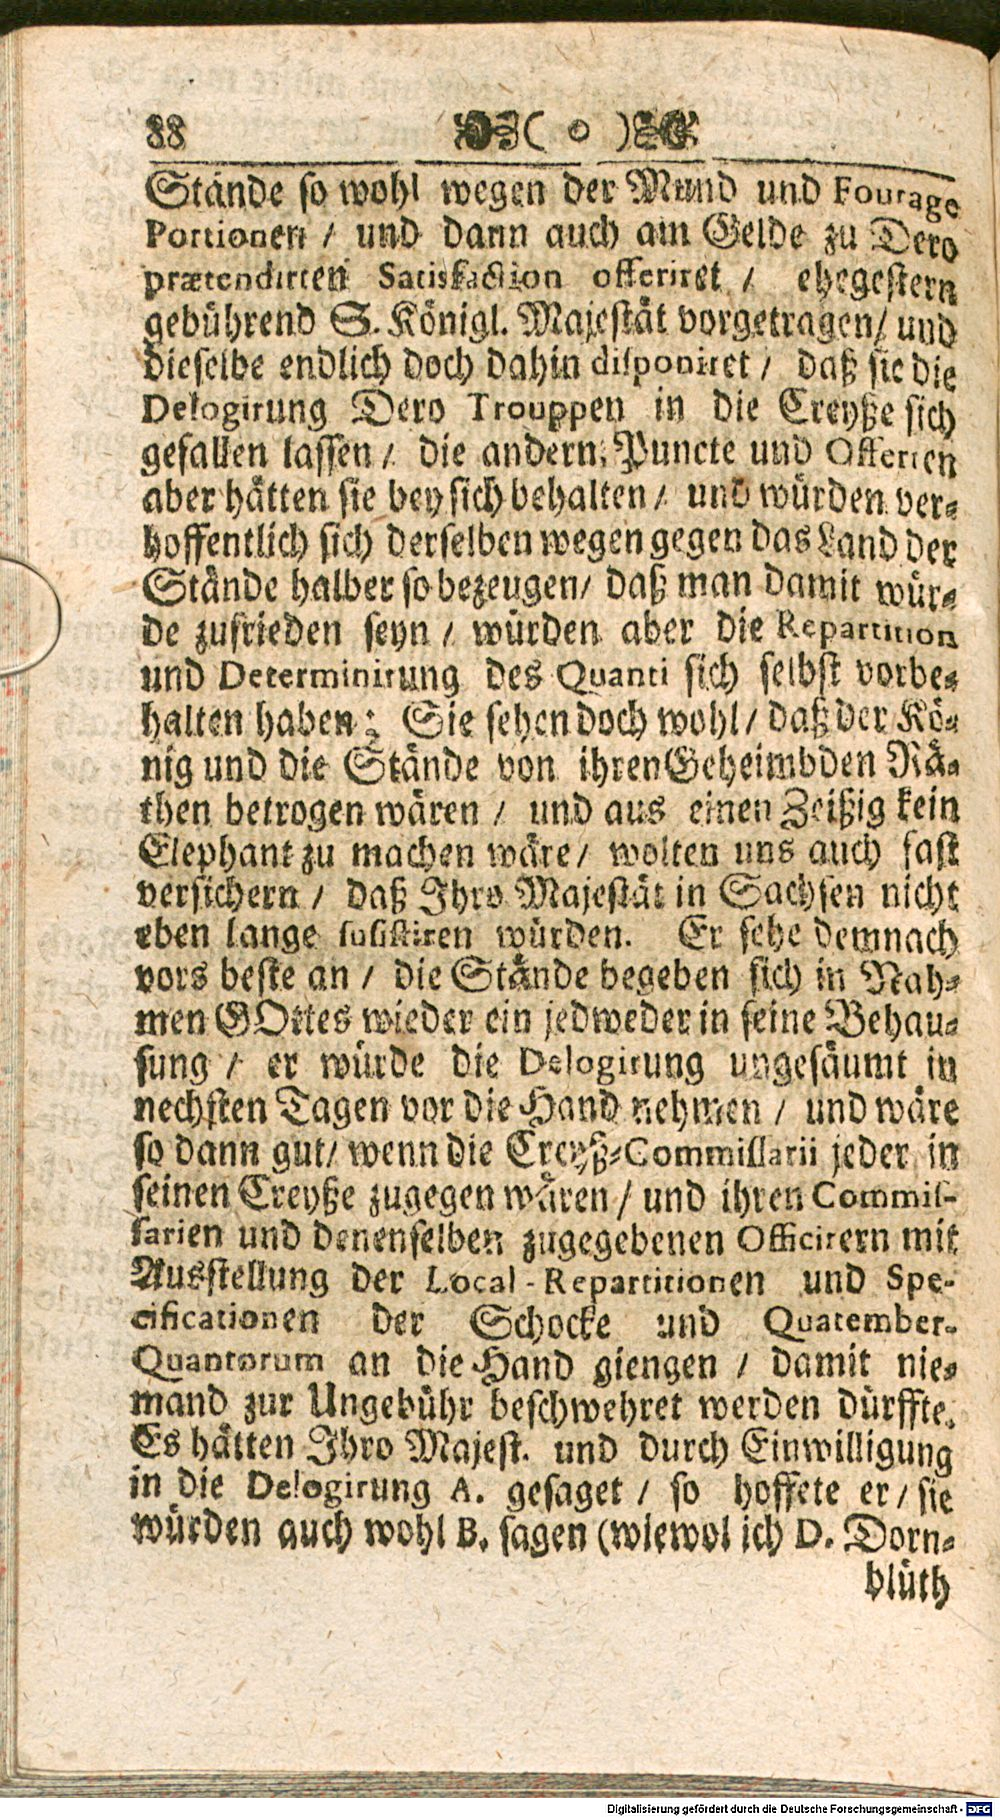 88 ( o )
Stände so wohl wegen der Mund und Fourage
Portionen / und dann auch am Gelde zu Dero
prætendirten Satisfaction offeriret / ehegestern
gebührend S. Königl. Majestät vorgetragen / und
dieselbe endlich doch dahin disponiret / daß sie die
Delogirung Dero Trouppen in die Creyße sich
gefallen lassen / die andern Puncte und Offerten
aber hätten sie bey sich behalten / und würden ver-
hoffentlich sich derselben wegen gegen das Land der
Stände halber so bezeugen / daß man damit wür-
de zufrieden seyn / würden aber die Repartition
und Determinirung des Quanti sich selbst vorbe-
halten haben: Sie sehen doch wohl / daß der Kö-
nig und die Stände von ihren Geheimbden Rä-
then betrogen wären / und aus einen Zeißig kein
Elephant zu machen wäre / wolten uns auch fast
versichern / daß Ihro Majestät in Sachsen nicht
eben lange subsistiren würden. Er sehe demnach
vors beste an / die Stände begeben sich in Nah-
men GOttes wieder ein jedweder in seine Behau-
sung / er würde die Delogirung ungesäumt in
nechsten Tagen vor die Hand nehmen / und wäre
so dann gut / wenn die Creyß-Commissarii jeder in
seinen Creyße zugegen wären / und ihren Commis-
sarien und denenselben zugegebenen Officirern mit
Ausstellung der Local-Repartitionen und Spe-
cificationen der Schocke und Quatember-
Quantorum an die Hand giengen / damit nie-
mand zur Ungebühr beschwehret werden dürffte.
Es hätten Ihro Majest. und durch Einwilligung
in die Delogirung A. gesaget / so hoffete er / sie
würden auch wohl B. sagen (wiewol ich D. Dorn-
blüth
Digitalisierung gefördert durch die Deutsche Forschungsgemeinschaft - DFG